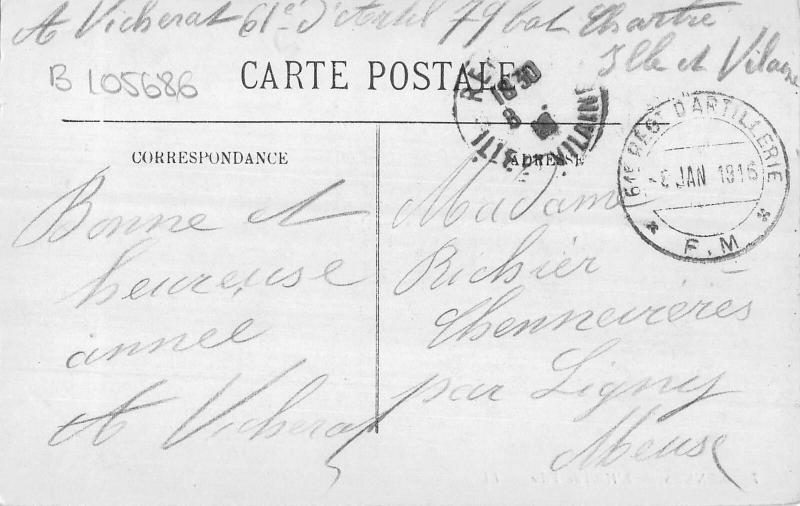 A Vicherat 61e d'Artil 79 bat Chartre
Ille et Vilaine
B 105686
CARTE POSTALE
CORRESPONDANCE
ADRESSE
10 30
8
ILLE VILAINE
61e REGT D'ARTILLERIE
JAN 1916
* F.M *
Bonne et
heureuse
année
A Vicherat
Madame
Richier
Chennevières
par Ligny
Meuse